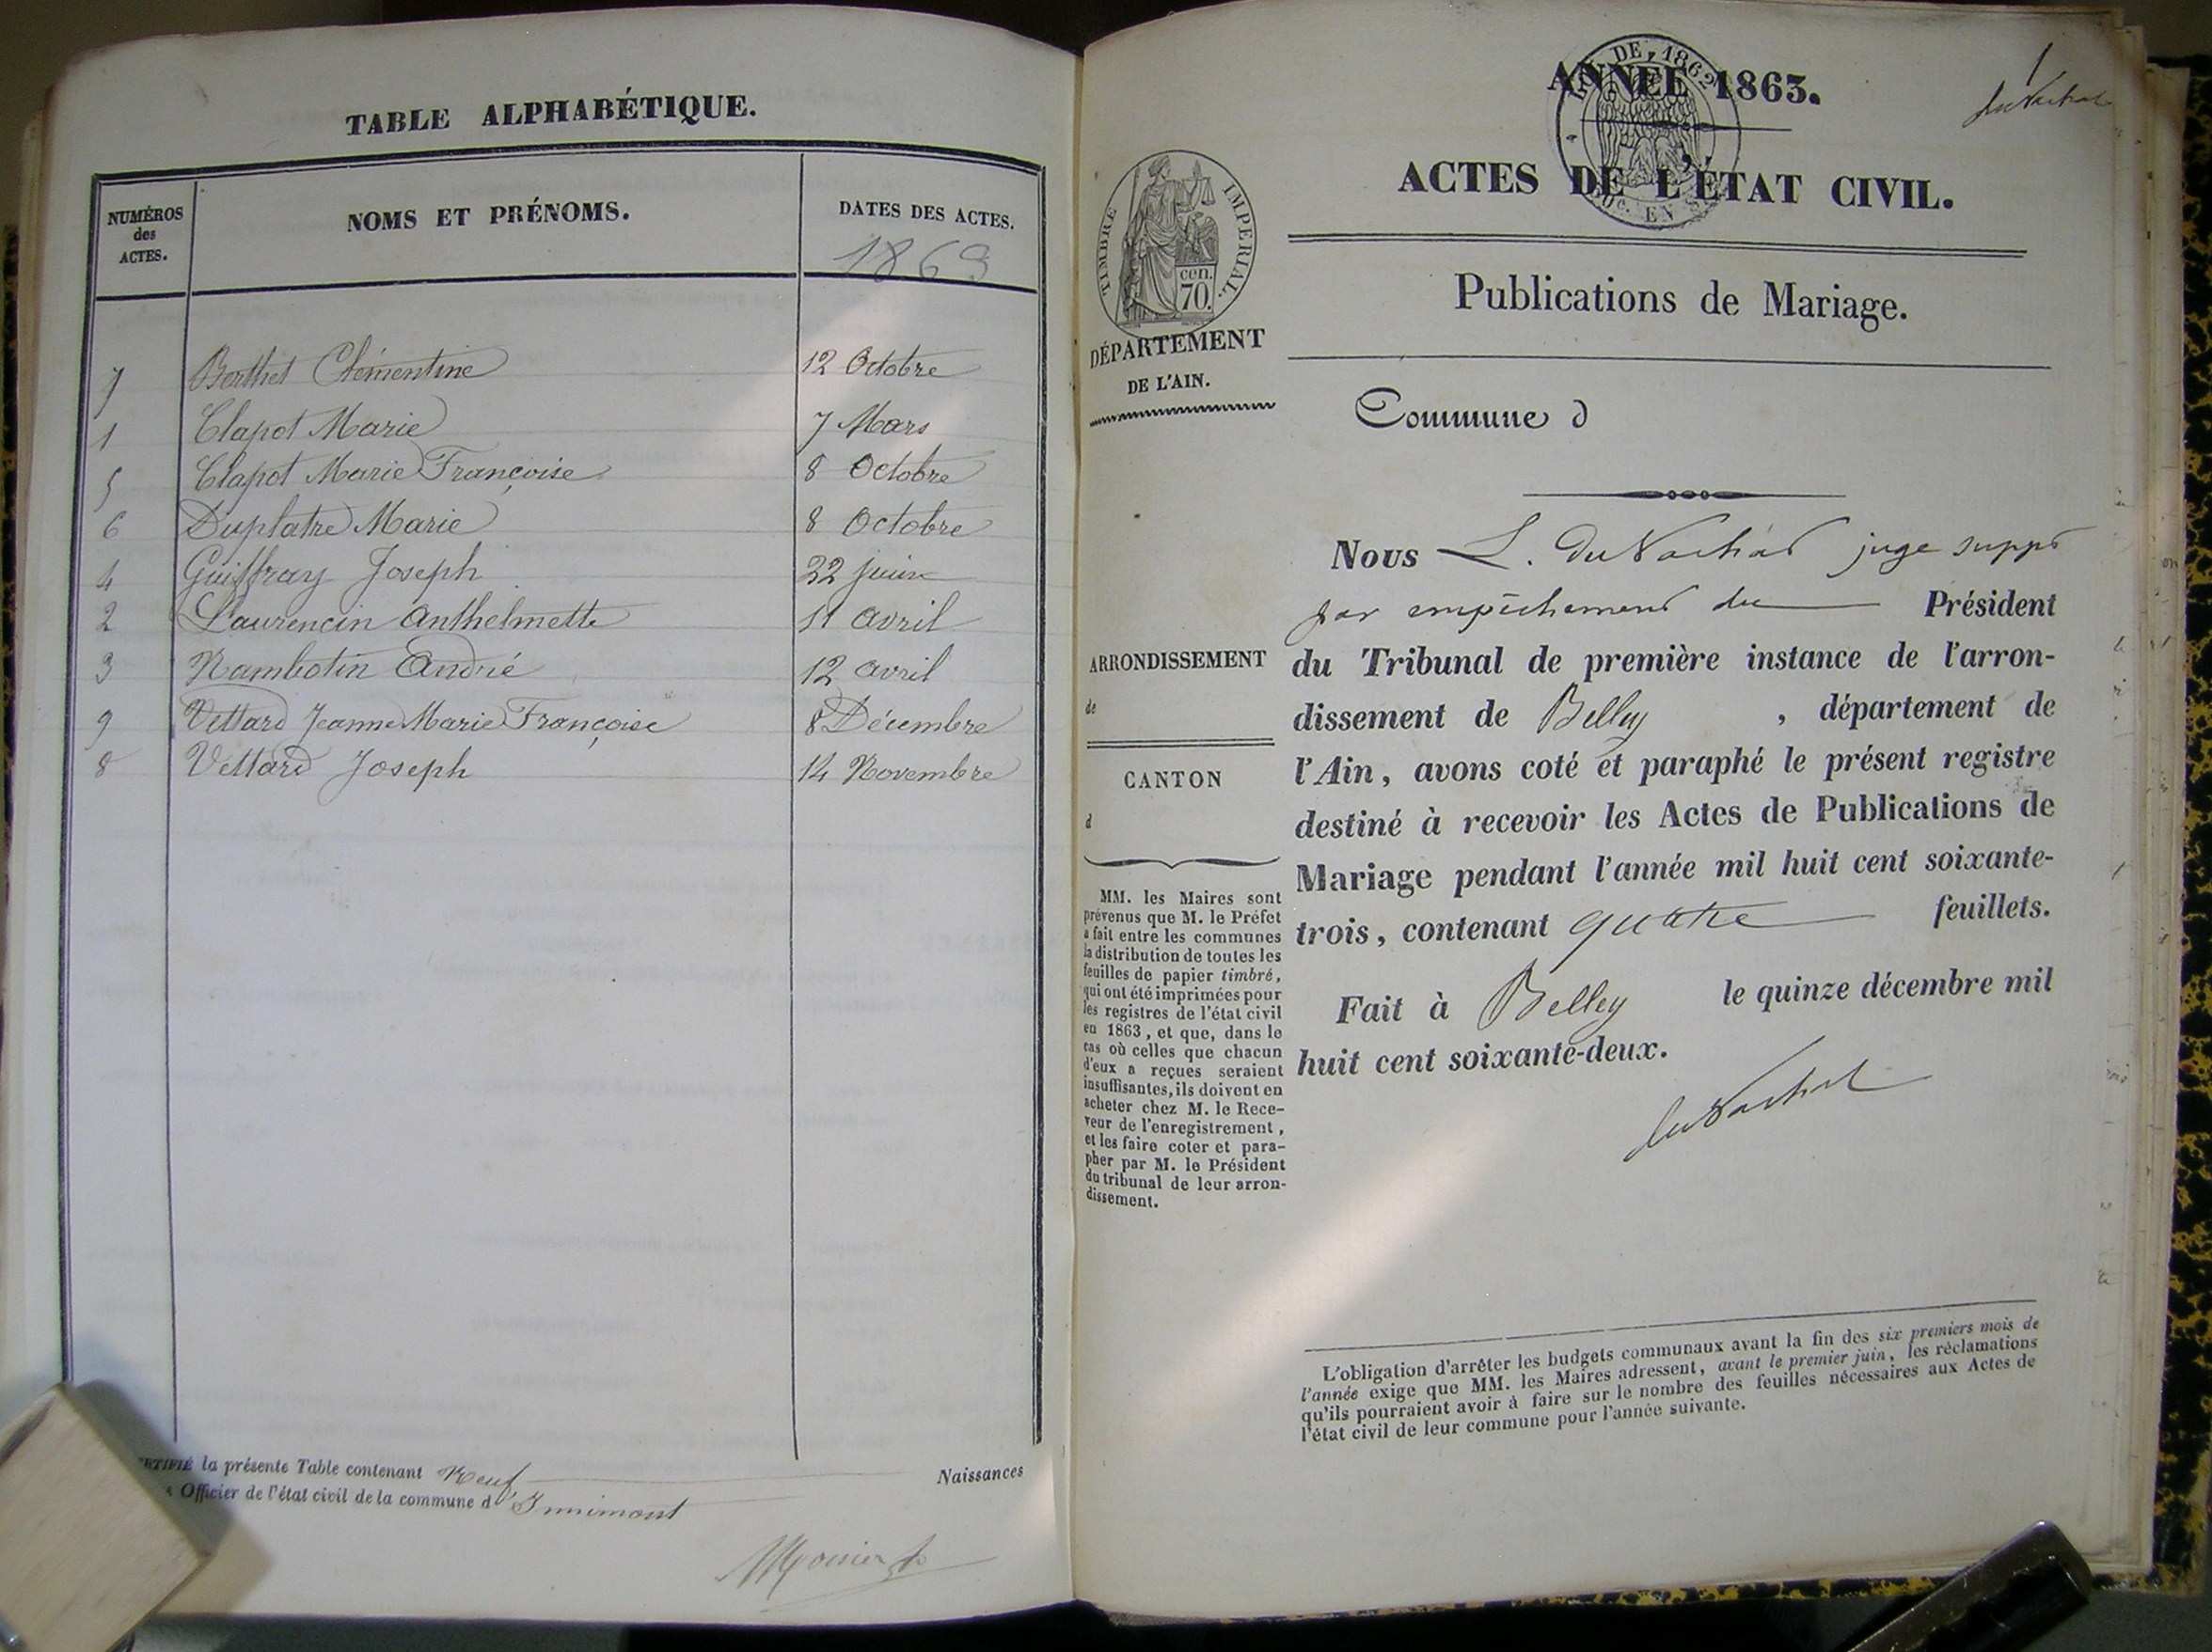 TABLE ALPHABÉTIQUE.
NUMÉROS des ACTES.
NOMS ET PRÉNOMS.
DATES DES ACTES.
1863
7 Berthet Clémentine 12 Octobre
1 Clapot Marie 7 Mars
5 Clapot Marie Françoise 8 Octobre
6 Duplatre Marie 8 Octobre
4 Guiffray Joseph 22 juin
2 Laurencin Anthelmette 11 avril
3 Nambotin André 12 avril
9 Vettard Jeanne Marie Françoise 8 Décembre
8 Vettard Joseph 14 Novembre
la présente Table contenant Neuf Naissances
Officier de l'état civil de la commune d'Innimont
ANNÉE 1863.
DE 1862
1
ACTES DE L'ÉTAT CIVIL.
TIMBRE IMPÉRIAL.
cen.
70.
Publications de Mariage.
DÉPARTEMENT
DE L'AIN.
Commune d
Nous L. Du Vachat juge suppt
par empêchement du Président
ARRONDISSEMENT
de
CANTON
d
du Tribunal de première instance de l'arron-
dissement de Belley, département de
l'Ain, avons coté et paraphé le présent registre
destiné à recevoir les Actes de Publications de
Mariage pendant l'année mil huit cent soixante-
trois, contenant quatre feuillets.
Fait à Belley le quinze décembre mil
huit cent soixante-deux.
duVachat
MM. les Maires sont
prévenus que M. le Préfet
a fait entre les communes
la distribution de toutes les
feuilles de papier timbré,
qui ont été imprimées pour
les registres de l'état civil
en 1863, et que, dans le
cas où celles que chacun
d'eux a reçues seraient
insuffisantes, ils doivent en
acheter chez M. le Rece-
veur de l'enregistrement,
et les faire coter et para-
pher par M. le Président
du tribunal de leur arron-
dissement.
L'obligation d'arrêter les budgets communaux avant la fin des six premiers mois de
l'année exige que MM. les Maires adressent, avant le premier juin, les réclamations
qu'ils pourraient avoir à faire sur le nombre des feuilles nécessaires aux Actes de
l'état civil de leur commune pour l'année suivante.